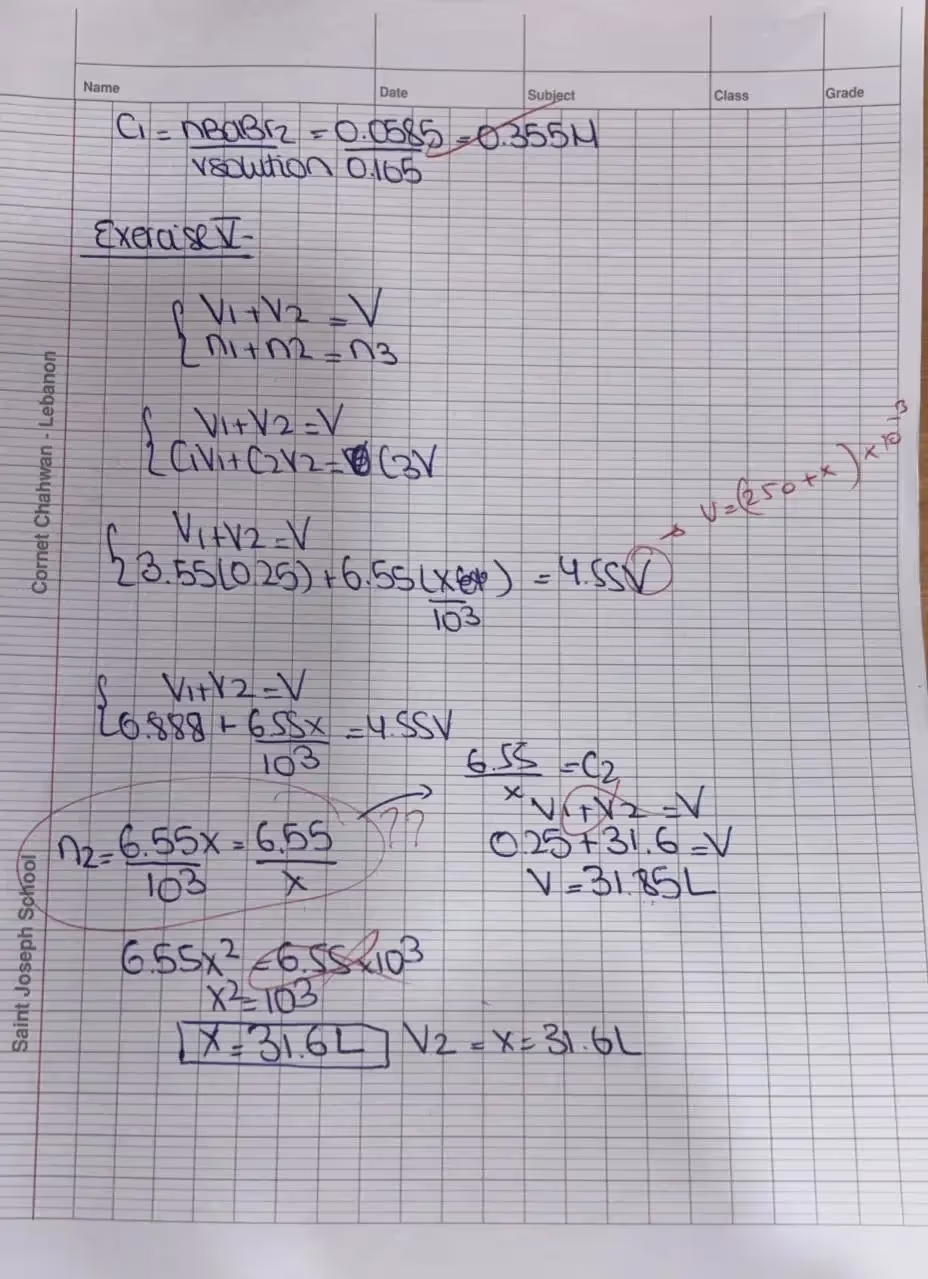 Name Date Subject Class Grade
C1 = nBaBr2 / vsolution = 0.0585 / 0.165 = 0.355M
Exercise V-
{ V1 + V2 = V
n1 + n2 = n3
{ V1 + V2 = V
C1V1 + C2V2 = C3V
V = (250 + x) x 10^-3
{ V1 + V2 = V
3.55(0.25) + 6.55(x / 10^3) = 4.55V
{ V1 + V2 = V
0.888 + 6.55x / 10^3 = 4.55V
n2 = 6.55x / 10^3 = 6.55 / x
??
6.55 / x = C2
V1 + V2 = V
0.25 + 31.6 = V
V = 31.85L
6.55x^2 = 6.55 x 10^3
x^2 = 10^3
x = 31.6L V2 = x = 31.6L
Cornet Chahwan - Lebanon
Saint Joseph School